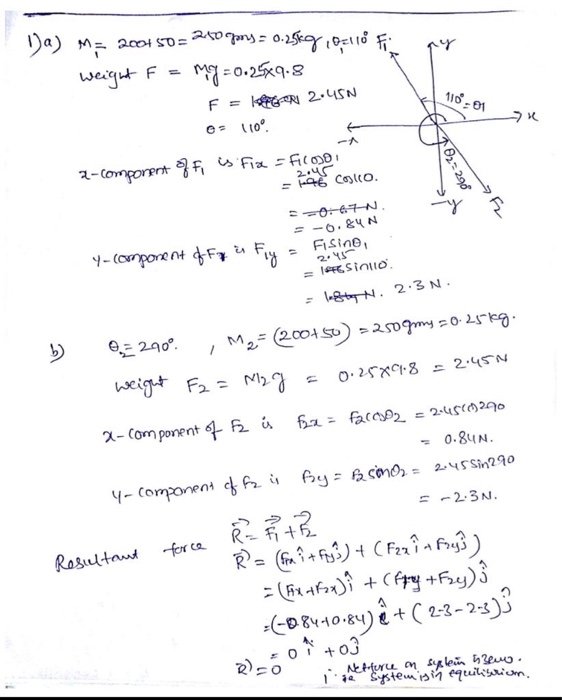 1) a) M₁ = 200+50 = 250gms = 0.25kg, θ₁=110° F₁
weight F = M₁g = 0.25×9.8
F = 2.45N
θ = 110°.
y
110° = θ1
x
-x
θ₂=290°
-y
F₂
x-component of F₁ is F₁x = F₁cosθ₁
2.45
= 1.96 cos110.
= -0.67 N.
= -0.84 N
y-component of F₁ is F₁y = F₁sinθ₁
2.45
= 1.96 sin110.
= 1.84 N. 2.3 N.
b) θ₂=290°. , M₂ = (200+50) = 250gms = 0.25kg.
weight F₂ = M₂g = 0.25×9.8 = 2.45N
x-component of F₂ is F₂x = F₂cosθ₂ = 2.45cos290
= 0.84N.
y-component of F₂ is F₂y = F₂sinθ₂ = 2.45 sin290
= -2.3N.
Resultant force R⃗ = F⃗₁ + F⃗₂
R⃗ = (F₁x î + F₁y ĵ) + (F₂x î + F₂y ĵ)
= (F₁x + F₂x) î + (F₁y + F₂y) ĵ
= (-0.84+0.84) î + (2.3-2.3) ĵ
= 0 î + 0 ĵ
R⃗ = 0 ∵ Net force on system is zero.
System is in equilibrium.